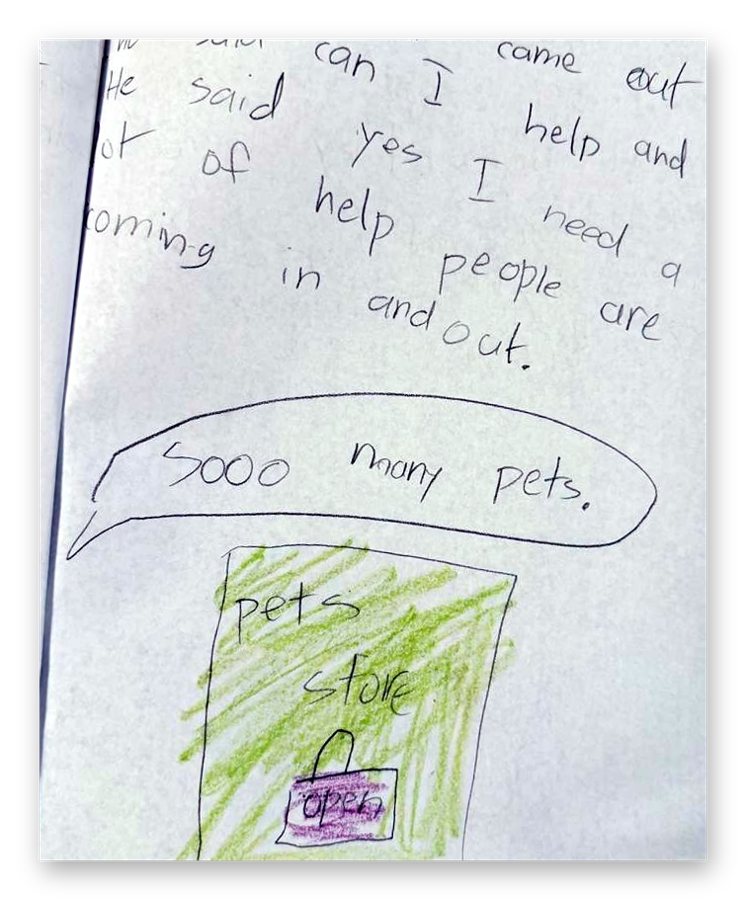 came out
said can I help and
He said yes I need a
lot of help people are
coming in and out.
Sooo many pets.
pets
store
open